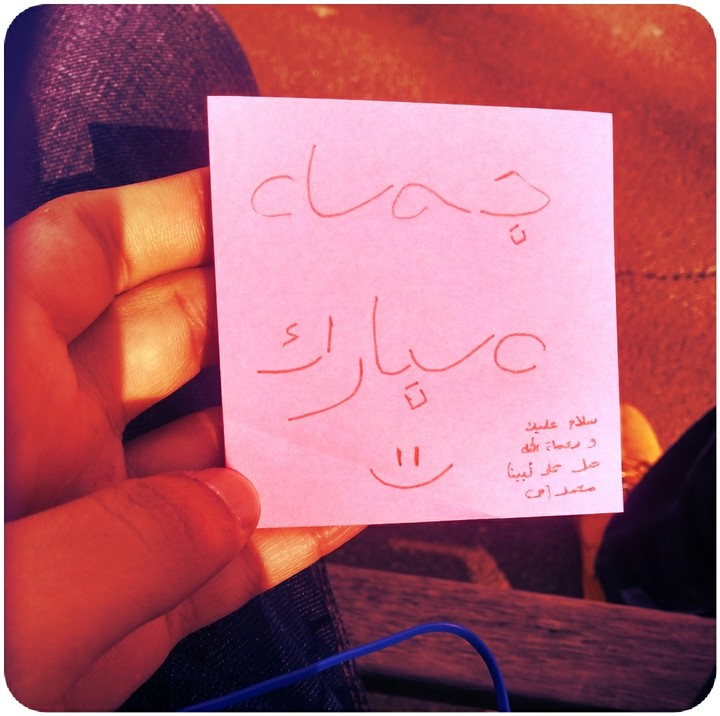 مبارك
سلام عليك
و رحماة الله
صل على نبينا
محمد